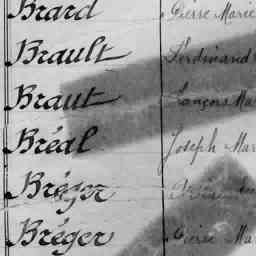 Brard Pierre Marie
Brault Ferdinand
Braut François Ma
Bréal Joseph Mar
Bréger
Bréger Pierre Ma